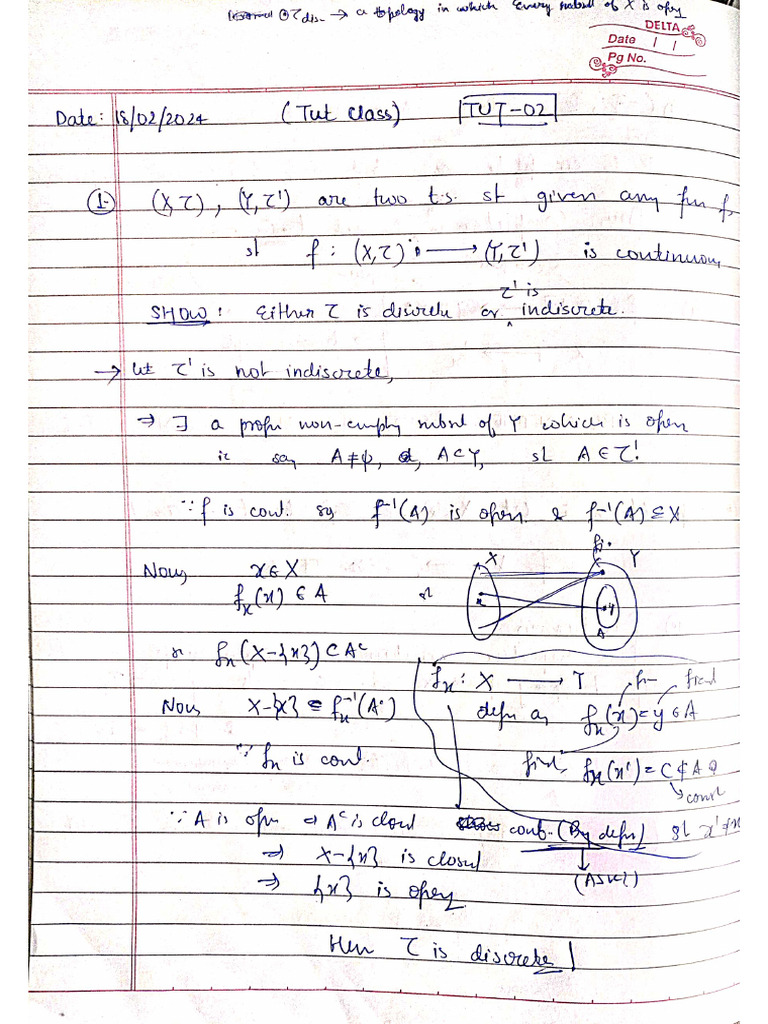 ⊙ τdis. → a topology in which every subset of X is open
DELTA
Date / /
Pg No.
Date: 18/02/2024 (Tut Class) TUT-02
① (X,τ), (Y,τ') are two t.s. st given any fun f,
st f : (X,τ) → (Y,τ') is continuous,
τ' is
SHOW: Either τ is discrete or ^ indiscrete.
→ let τ' is not indiscrete,
⇒ ∃ a proper non-empty subset of Y which is open
ie say A≠ϕ, A⊂Y, st A∈τ'.
∵ f is cont. so f⁻¹(A) is open & f⁻¹(A)⊆X
Now, x∈X
fₓ(x) ∈ A
X Y
x y
A
fₓ(X-{x})⊂Aᶜ
fₓ: X → Y
Now, X-{x} ⊆ fₓ⁻¹(Aᶜ)
defn as fₓ(x)=y∈A
fixed
∵ fₓ is cont.
fixed, fₓ(x')=C∉A
const
∵ A is open ⇒ Aᶜ is closed
cont. (By defn) st x'≠x
⇒ X-{x} is closed
⇒ {x} is open
(ASK?)
Hen τ is discrete!